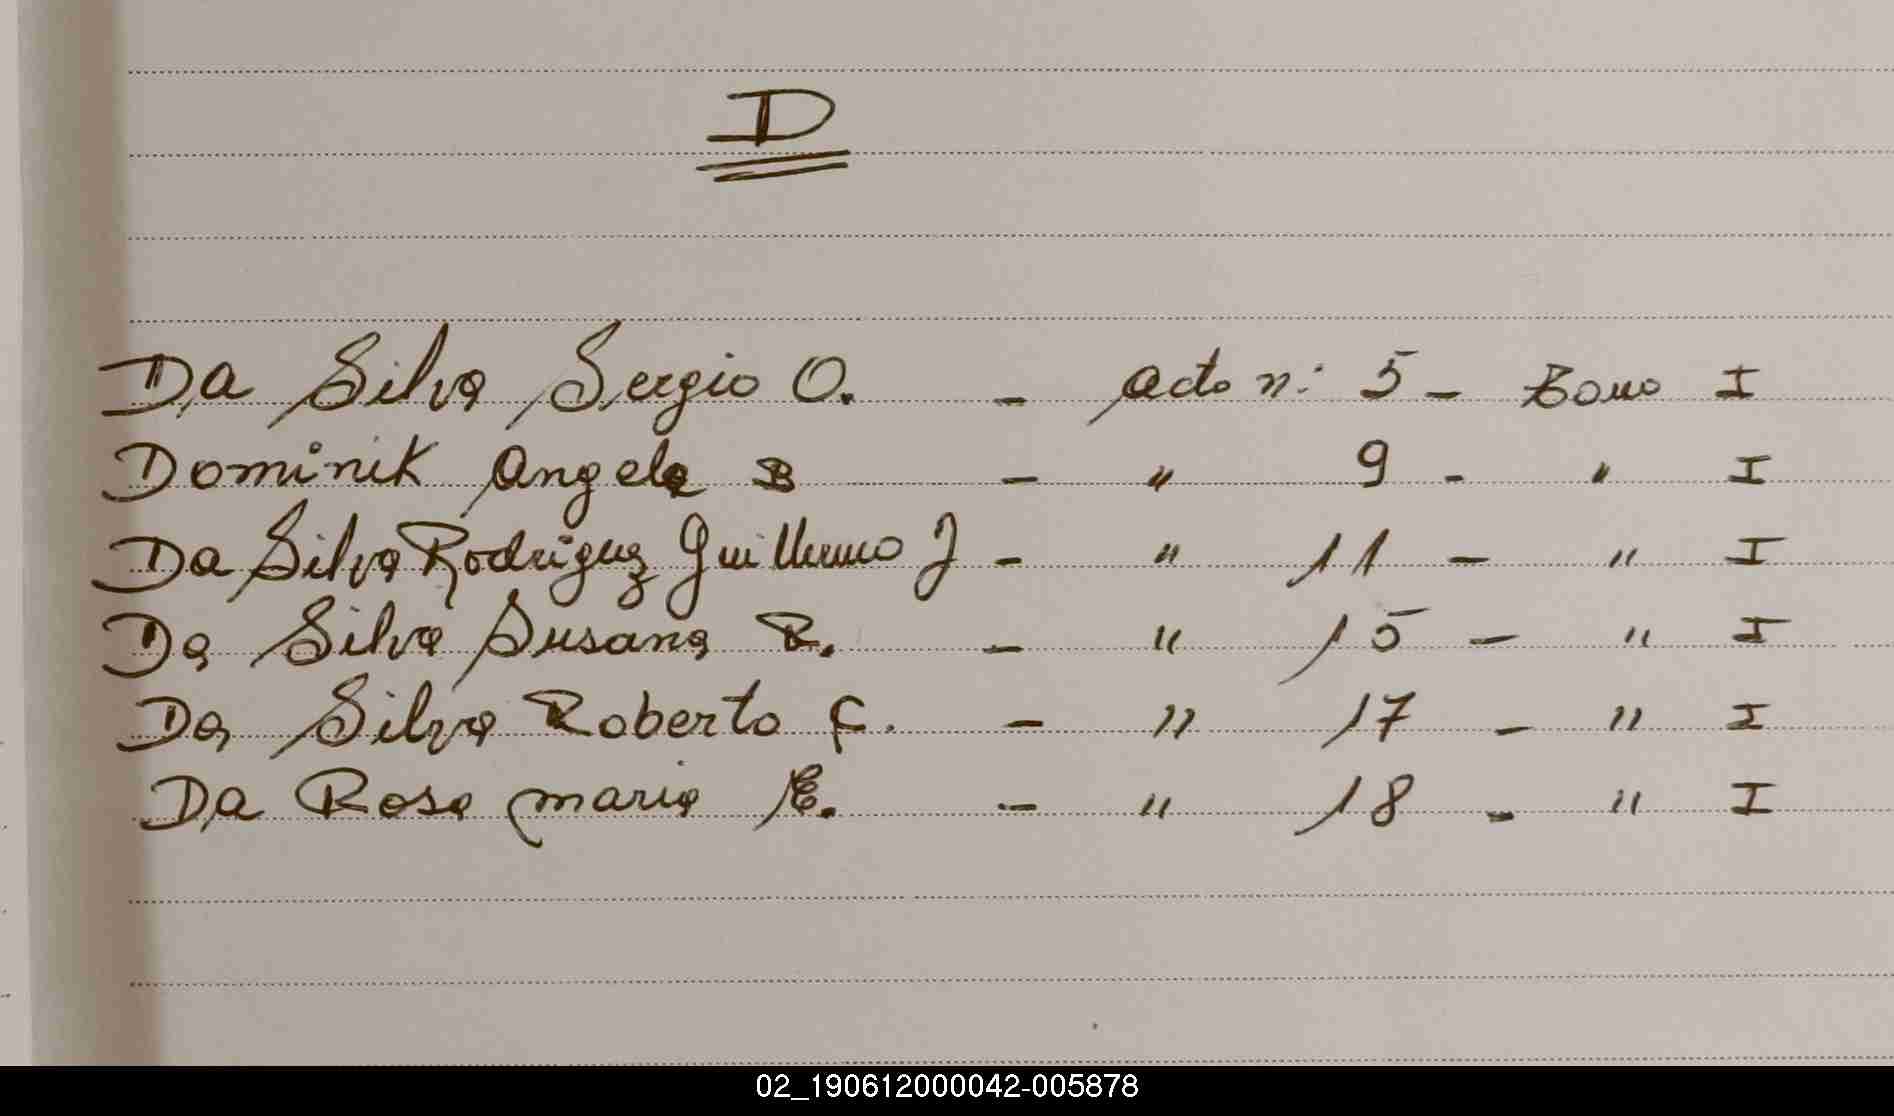 D
Da Silva Sergio O. - Acta n: 5 - Tomo I
Dominik Angela B - " 9 - " I
Da Silva Rodriguez Guillermo J - " 11 - " I
Da Silva Susana R. - " 15 - " I
Da Silva Roberto F. - " 17 - " I
Da Rosa maria E. - " 18 - " I
02_190612000042-005878